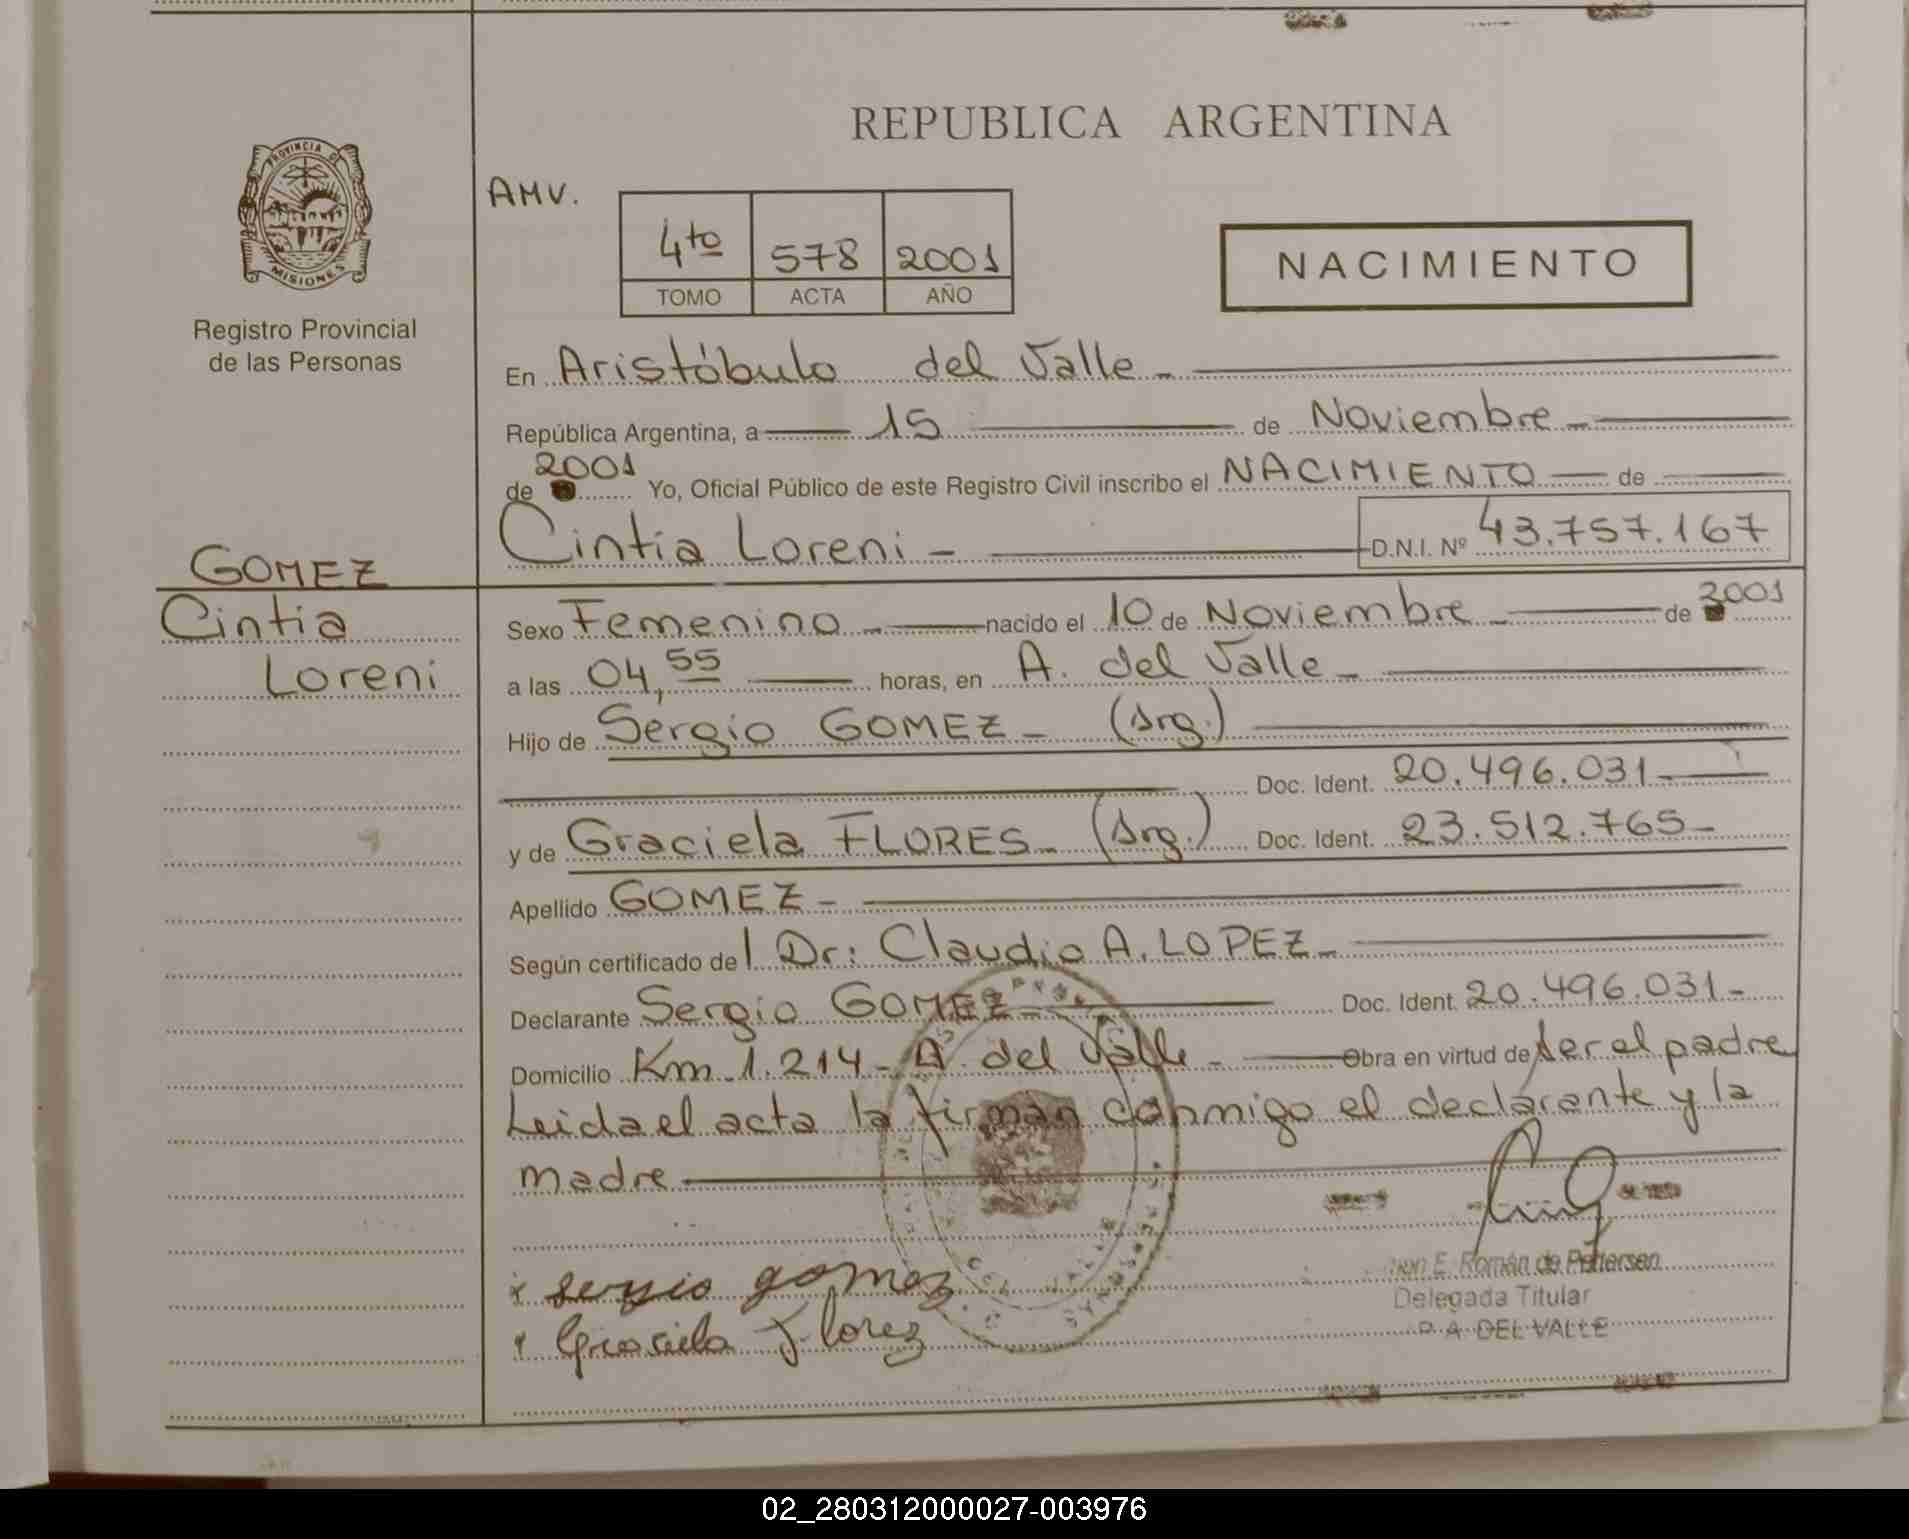 REPUBLICA ARGENTINA
PROVINCIA DE
MISIONES
Registro Provincial
de las Personas
AMV.
4to 578 2001
TOMO ACTA AÑO
NACIMIENTO
En Aristóbulo del Valle -
República Argentina, a 15 de Noviembre -
de 2001 Yo, Oficial Público de este Registro Civil inscribo el NACIMIENTO de
Cintia Loreni - D.N.I. Nº 43.757.167
GOMEZ
Cintia
Loreni
Sexo Femenino - nacido el 10 de Noviembre - de 2001
a las 04,55 horas, en A. del Valle -
Hijo de Sergio GOMEZ - (Arg.)
Doc. Ident. 20.496.031 -
y de Graciela FLORES - (Arg.) Doc. Ident. 23.512.765 -
Apellido GOMEZ -
Según certificado del Dr: Claudio A. LOPEZ -
Declarante Sergio GOMEZ - Doc. Ident. 20.496.031 -
Domicilio Km. 1.214 - A. del Valle - Obra en virtud de ser el padre
Leida el acta la firman conmigo el declarante y la
madre
x sergio gomez
x Graciela Florez
E. Román de Pettersen
Delegada Titular
A. DEL VALLE
02_280312000027-003976